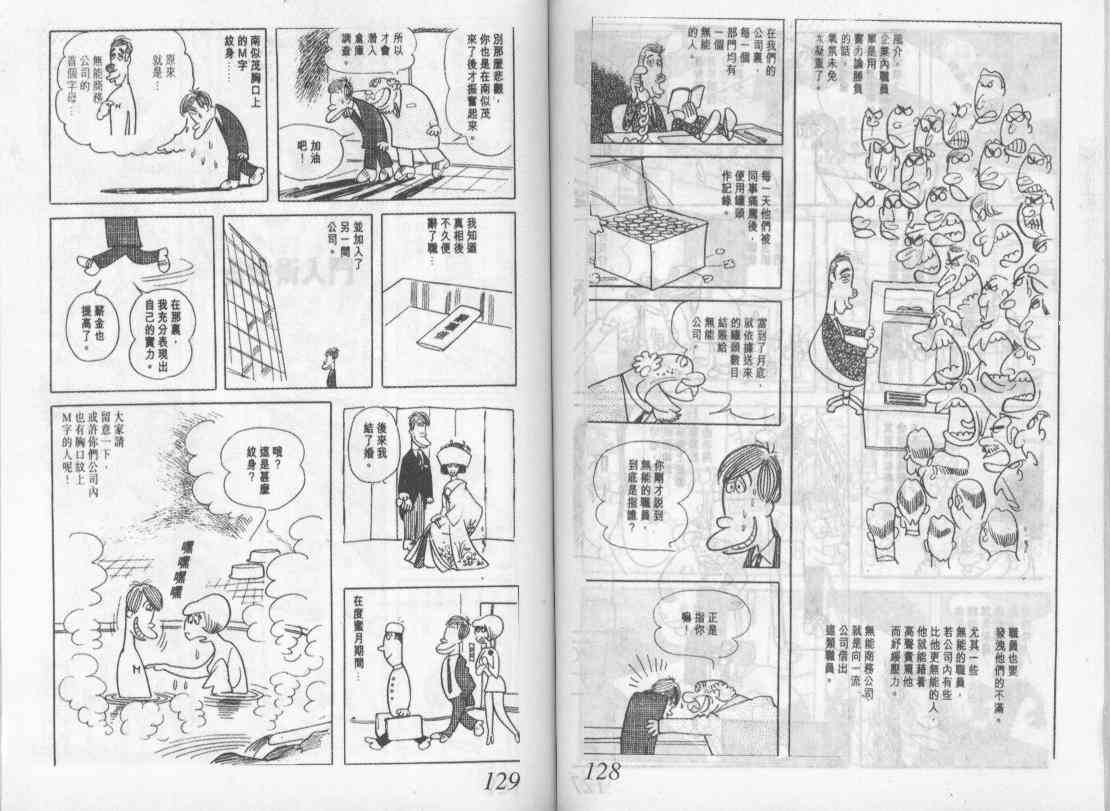 企業內職員
單是用
實力論勝負
的話，
氣氛未免
職員也要
發洩他們的不滿。
尤其一些
無能的職員，
若公司內有些
比他更無能的人，
他就能藉着
高聲責罵他
而紓緩壓力。
無能商務公司
就是向一流
公司借出
這類職員。
在我們的
公司裏，
每一個
部門均有
一個
無能
的人。
每一天他們被
同事痛罵後，
便用罐頭
作記錄。
當到了月底，
就依據送來
的罐頭數目
結賬給
無能
公司。
你剛才說到
無能的職員，
到底是指誰？
正是
指你
嘛！
128
別那麼悲觀，
你也是在南似茂
來了後才振奮起來。
所以
才會
潛入
倉庫
調查。
加油
吧！
南似茂胸口上
的M字
紋身……
原來
就是…
無能商務
公司的
首個字母…
我知道
真相後
不久便
辭了職…
並加入了
另一間
公司。
在那裏，
我充分表現出
自己的實力。
薪金也
提高了。
後來我
結了婚。
在度蜜月期間…
哦？
這是甚麼
紋身？
嘿嘿嘿嘿
M
大家請
留意一下，
或許你們公司內
也有胸口紋上
M字的人呢！
129